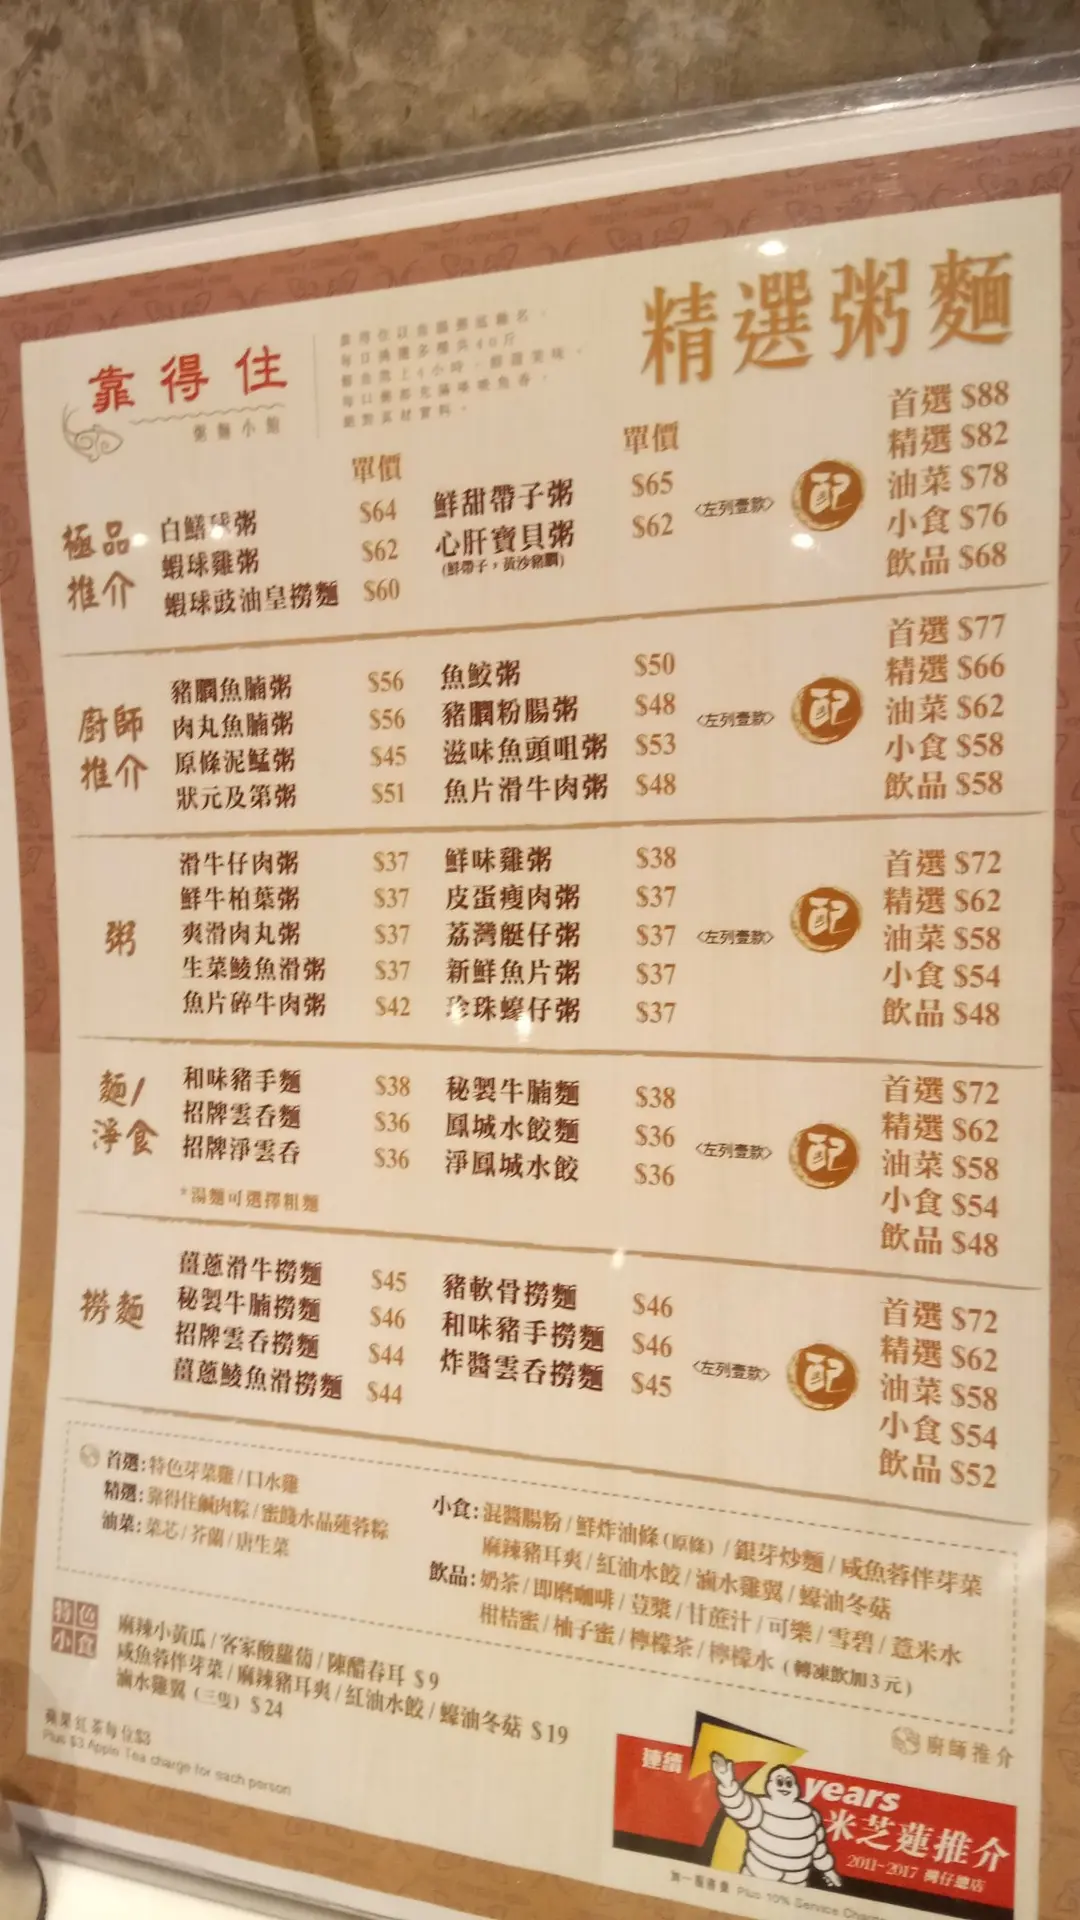 精選粥麵
靠得住
粥麵小館
靠得住以魚腩粥底馳名，
單價
單價
極品
推介
白鱔球粥 $64
蝦球雞粥 $62
蝦球豉油皇撈麵 $60
鮮甜帶子粥 $65
心肝寶貝粥 $62
(鮮帶子，黃沙豬膶)
〈左列壹款〉
配
首選 $88
精選 $82
油菜 $78
小食 $76
飲品 $68
廚師
推介
豬膶魚腩粥 $56
肉丸魚腩粥 $56
原條泥鯭粥 $45
狀元及第粥 $51
魚鮫粥 $50
豬膶粉腸粥 $48
滋味魚頭咀粥 $53
魚片滑牛肉粥 $48
〈左列壹款〉
配
首選 $77
精選 $66
油菜 $62
小食 $58
飲品 $58
粥
滑牛仔肉粥 $37
鮮牛柏葉粥 $37
爽滑肉丸粥 $37
生菜鯪魚滑粥 $37
魚片碎牛肉粥 $42
鮮味雞粥 $38
皮蛋瘦肉粥 $37
荔灣艇仔粥 $37
新鮮魚片粥 $37
珍珠蠔仔粥 $37
〈左列壹款〉
配
首選 $72
精選 $62
油菜 $58
小食 $54
飲品 $48
麵/
淨食
和味豬手麵 $38
招牌雲吞麵 $36
招牌淨雲吞 $36
*湯麵可選擇粗麵
秘製牛腩麵 $38
鳳城水餃麵 $36
淨鳳城水餃 $36
〈左列壹款〉
配
首選 $72
精選 $62
油菜 $58
小食 $54
飲品 $48
撈麵
薑蔥滑牛撈麵 $45
秘製牛腩撈麵 $46
招牌雲吞撈麵 $44
薑蔥鯪魚滑撈麵 $44
豬軟骨撈麵 $46
和味豬手撈麵 $46
炸醬雲吞撈麵 $45
〈左列壹款〉
配
首選 $72
精選 $62
油菜 $58
小食 $54
飲品 $52
首選:特色芽菜雞/口水雞
精選:靠得住鹹肉粽/蜜餞水晶蓮蓉粽
油菜:菜芯/芥蘭/唐生菜
小食:混醬腸粉/鮮炸油條(原條)/銀芽炒麵/咸魚蓉伴芽菜
麻辣豬耳爽/紅油水餃/滷水雞翼/蠔油冬菇
飲品:奶茶/即磨咖啡/荳漿/甘蔗汁/可樂/雪碧/薏米水
柑桔蜜/柚子蜜/檸檬茶/檸檬水(轉凍飲加3元)
特色
小食
麻辣小黃瓜/客家酸蘿蔔/陳醋春耳 $9
咸魚蓉伴芽菜/麻辣豬耳爽/紅油水餃/蠔油冬菇 $19
滷水雞翼(三隻) $24
蘋果紅茶每位$3
Plus $3 Apple Tea charge for each person
廚師推介
連續
years
米芝蓮推介
2011-2017 灣仔總店
加一服務費 Plus 10% Service Charge